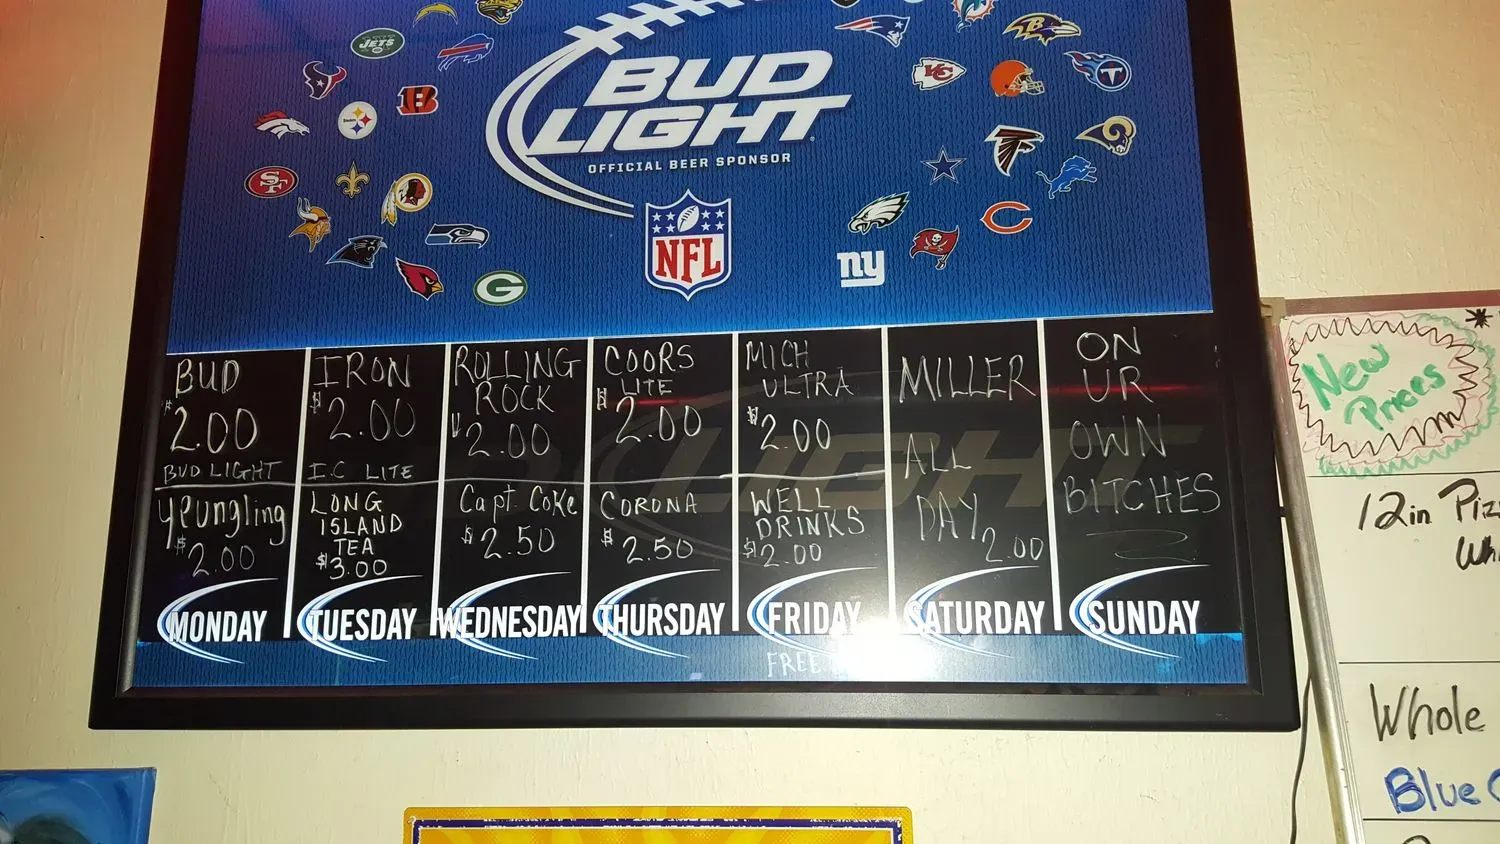 JETS
BUD
LIGHT
OFFICIAL BEER SPONSOR
Steelers
KC
B
T
SF
NFL
ny
C
G
BUD
$2.00
BUD LIGHT
Yeungling
$2.00
MONDAY
IRON
$2.00
I.C LITE
LONG
ISLAND
TEA
$3.00
TUESDAY
ROLLING
ROCK
$2.00
Capt. Coke
$2.50
WEDNESDAY
COORS
LITE
$2.00
CORONA
$2.50
THURSDAY
MICH
ULTRA
$2.00
WELL
DRINKS
$2.00
FRIDAY
FREE
MILLER
ALL
DAY
2.00
SATURDAY
ON
UR
OWN
BITCHES
SUNDAY
New
Prices
12in
Whole
Blue